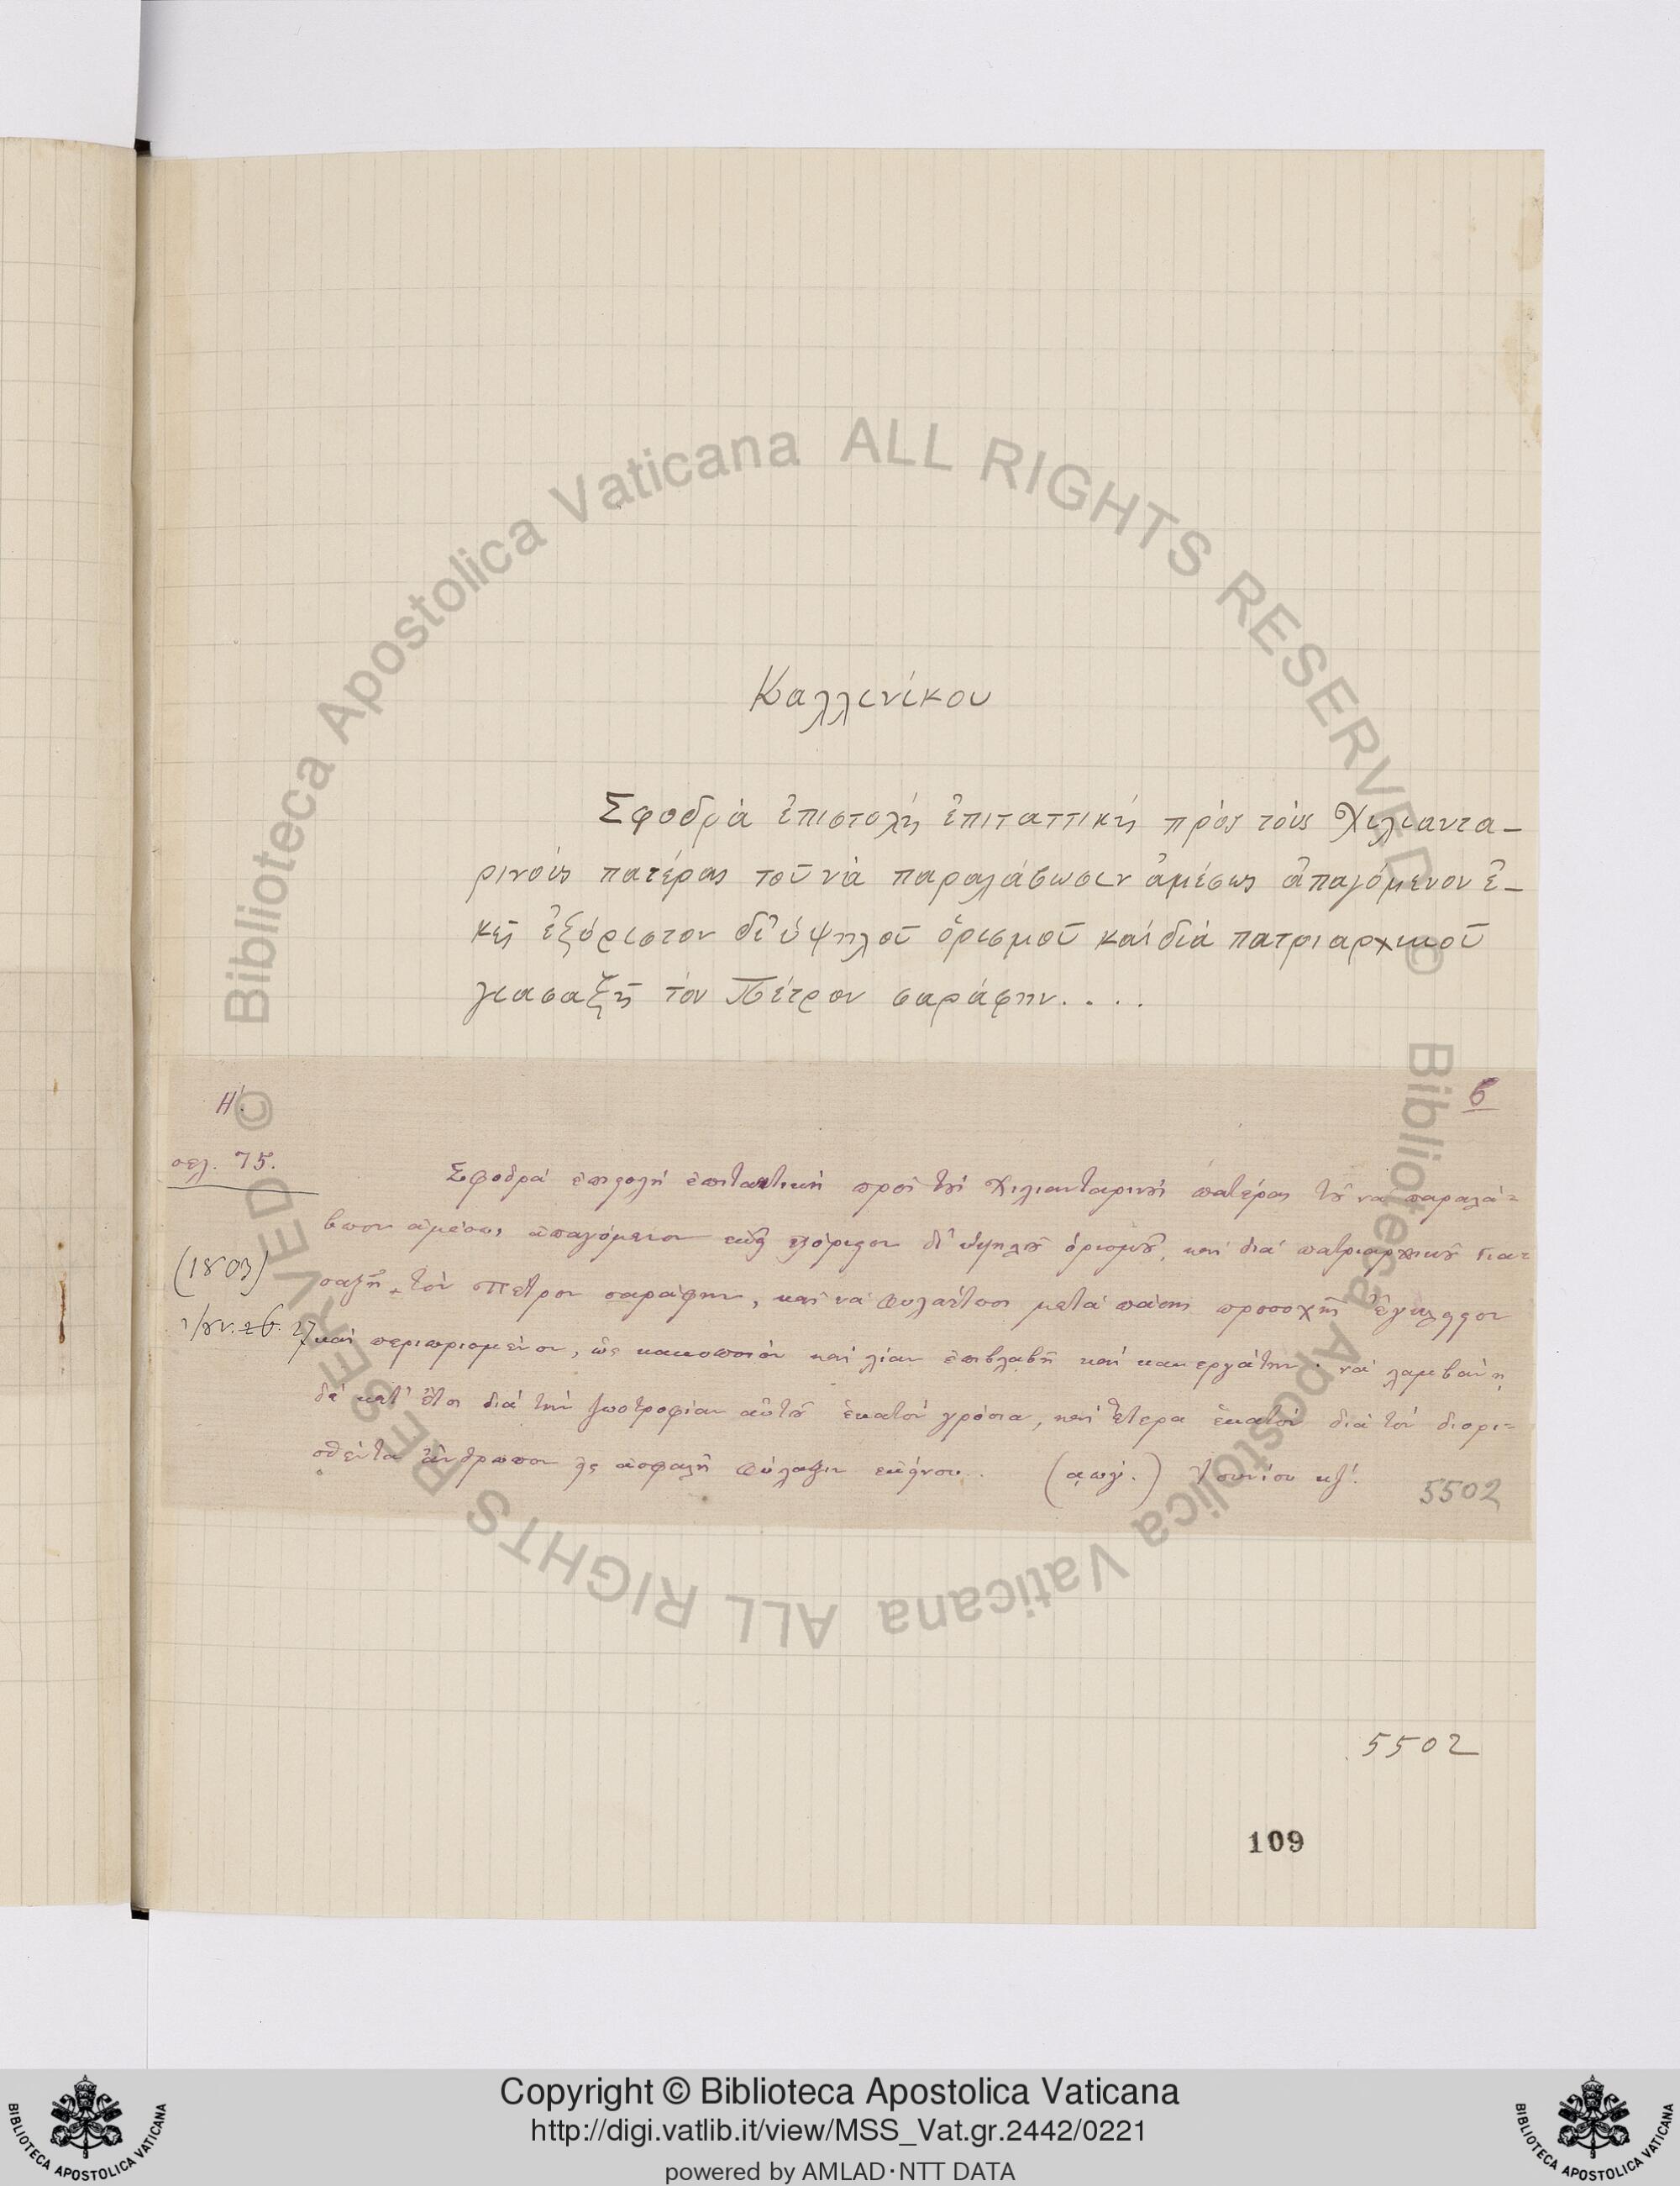 Καλλινίκου
Σφοδρὰ ἐπιστολὴ ἐπιταττικὴ πρὸς τοὺς Χιλιαντα-
ρινοὺς πατέρας τοῦ νὰ παραλάβωσιν ἀμέσως ἀπαγόμενον ἐ-
κεῖ ἐξόριστον δι' ὑψηλοῦ ὁρισμοῦ καὶ διὰ πατριαρχικοῦ
γιασαξῆ τὸν Πέτρον σαράφην....
Η'.
6
σελ. 75.
Σφοδρὰ ἐπιστολὴ ἐπιτακτικὴ πρὸς τοὺς Χιλιανταρινοὺς πατέρας τοῦ νὰ παραλά=
βωσιν ἀμέσως ἀπαγόμενον ἐκεῖ ἐξόριστον δι' ὑψηλοῦ ὁρισμοῦ, καὶ διὰ πατριαρχικοῦ Για=
(1803)
σαξῆ, τὸν Πέτρον σαράφην, καὶ νὰ φυλάττωσι μετὰ πάσης προσοχῆς ἔγκλειστον
27
καὶ περιωρισμένον, ὡς κακοποιὸν καὶ λίαν ἐπιβλαβῆ καὶ κακεργάτην· νὰ λαμβάνῃ
δὲ κατ' ἔτος διὰ τὴν ζωοτροφίαν αὐτοῦ ἑκατὸν γρόσια, καὶ ἕτερα ἑκατὸν διὰ τὸν διορι-
σθέντα ἄνθρωπον εἰς ἀσφαλῆ φύλαξιν ἐκείνου. (αωγ'.) Ἰουνίου κζ'.
5502
5502
109
Biblioteca Apostolica Vaticana ALL RIGHTS RESERVED ©
Biblioteca Apostolica Vaticana ALL RIGHTS RESERVED ©
Copyright © Biblioteca Apostolica Vaticana
http://digi.vatlib.it/view/MSS_Vat.gr.2442/0221
powered by AMLAD·NTT DATA
BIBLIOTECA APOSTOLICA VATICANA
BIBLIOTECA APOSTOLICA VATICANA